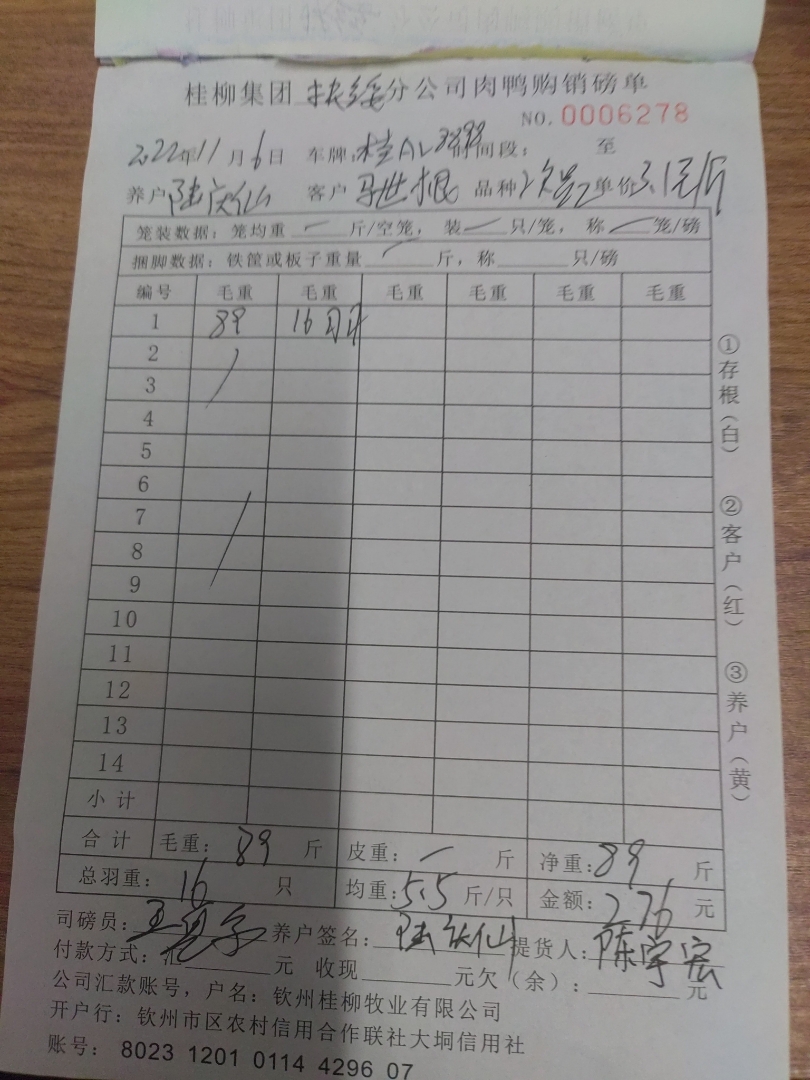 桂柳集团 扶绥分公司肉鸭购销磅单
NO. 0006278
2022年11月6日 车牌: 桂AL3898 时间段: 至
养户 陆庆仙 客户 马世根 品种 次品 单价 3.1元/斤
笼装数据: 笼均重 — 斤/空笼, 装 — 只/笼, 称 — 笼/磅
捆脚数据: 铁筐或板子重量 斤, 称 只/磅
编号 毛重 毛重 毛重 毛重 毛重 毛重
1 89 16只
2
3
4
5
6
7
8
9
10
11
12
13
14
小计
合计 毛重: 89 斤 皮重: — 斤 净重: 89 斤
总羽重: 16 只 均重: 5.5 斤/只 金额: 276 元
司磅员: 王 养户签名: 陆庆仙 提货人: 陈宇宏
付款方式: 汇 元 收现 元欠(余): 元
公司汇款账号, 户名: 钦州桂柳牧业有限公司
开户行: 钦州市区农村信用合作联社大垌信用社
账号: 8023 1201 0114 4296 07
①存根(白) ②客户(红) ③养户(黄)